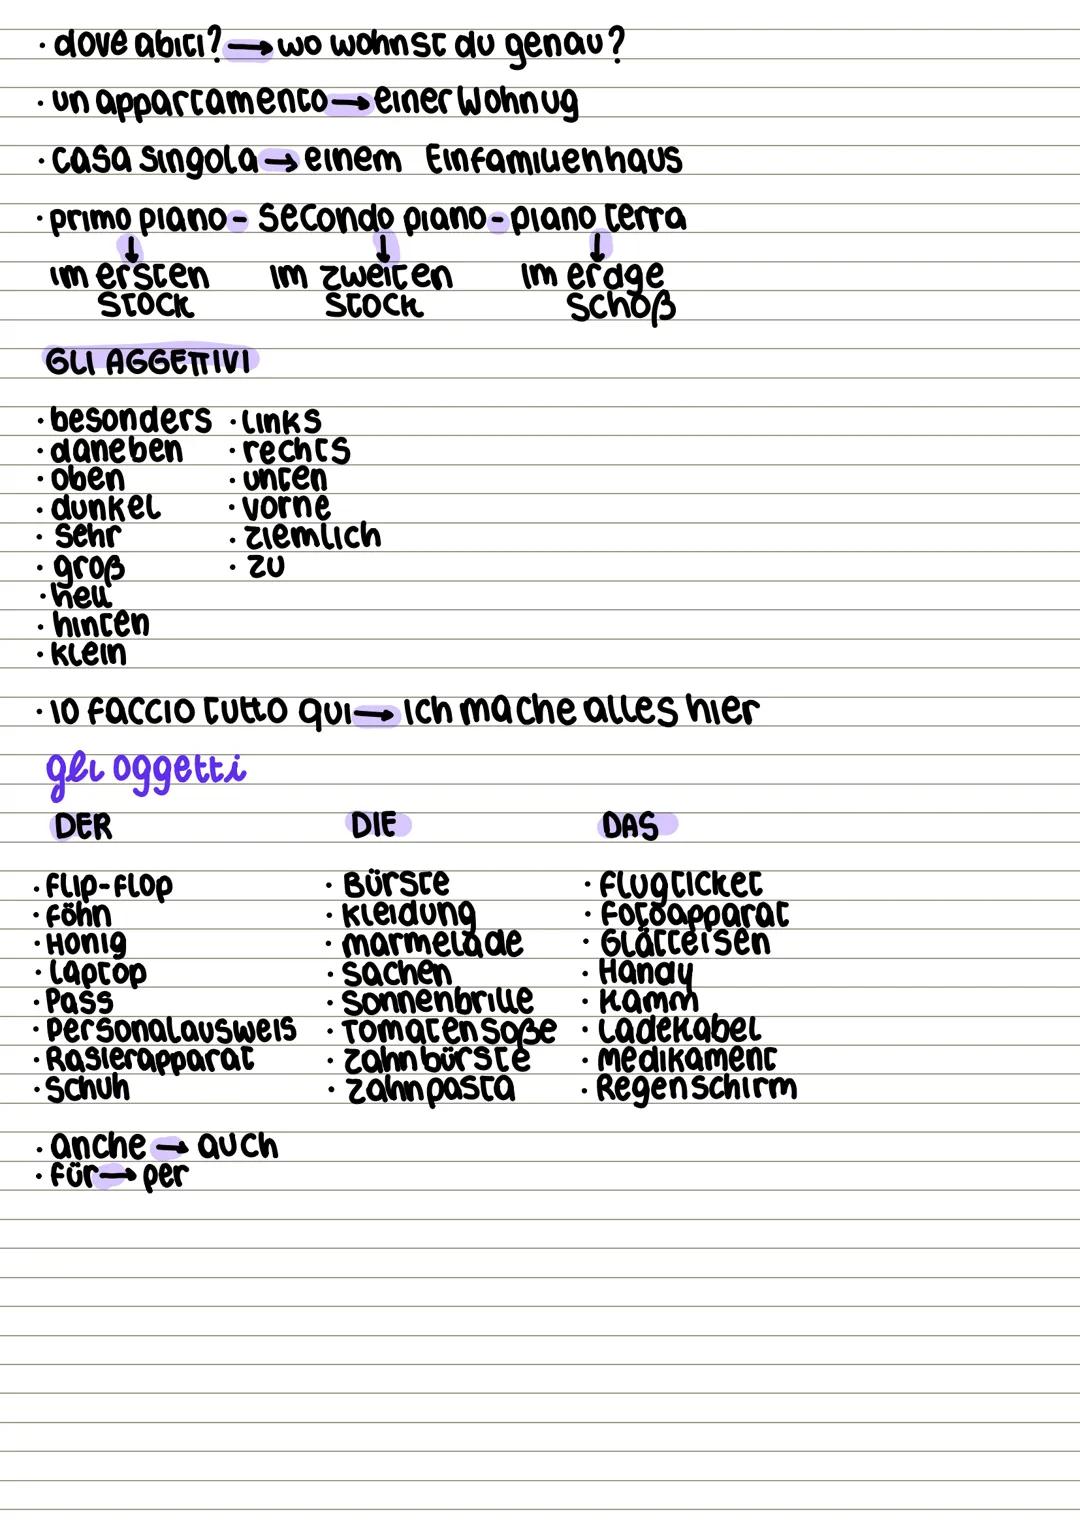 · dove abiti? → wo wohnst du genau?
· un appartamento → einer Wohnug
· casa singola → einem Einfamilienhaus
· primo piano - secondo piano - piano terra
↓ ↓ ↓
im ersten im zweiten im erdge
stock stock schoß
GLI AGGETTIVI
· besonders · links
· daneben · rechts
· oben · unten
· dunkel · vorne
· sehr · ziemlich
· groß · zu
· hell
· hinten
· klein
· io faccio tutto qui → ich mache alles hier
gli oggetti
DER DIE DAS
· Flip-Flop · Bürste · flugticket
· föhn · kleidung · fotoapparat
· Honig · marmelade · Glätteisen
· laptop · sachen · Handy
· Pass · sonnenbrille · Kamm
· personalausweis · Tomatensoße · Ladekabel
· Rasierapparat · zahnbürste · medikament
· schuh · zahnpasta · Regenschirm
· anche → auch
· für → per